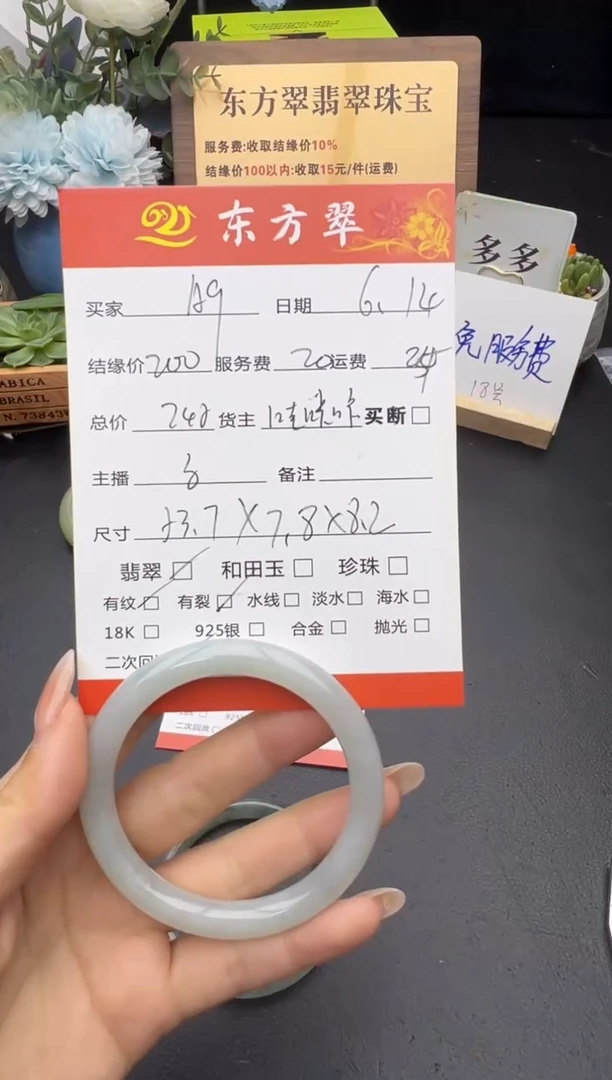 东方翠翡翠珠宝
服务费:收取结缘价10%
结缘价100以内:收取15元/件(运费)
东方翠
多多
免服务费
18号
买家 日期 6.14
结缘价 200 服务费 20 运费
总价 货主 买断 □
主播 备注
尺寸 53.7X7.8X8.2
翡翠 □ 和田玉 □ 珍珠 □
有纹 □ 有裂 □ 水线 □ 淡水 □ 海水 □
18K □ 925银 □ 合金 □ 抛光 □
二次回
925
二次回流
ABICA
BRASIL
N. 73843